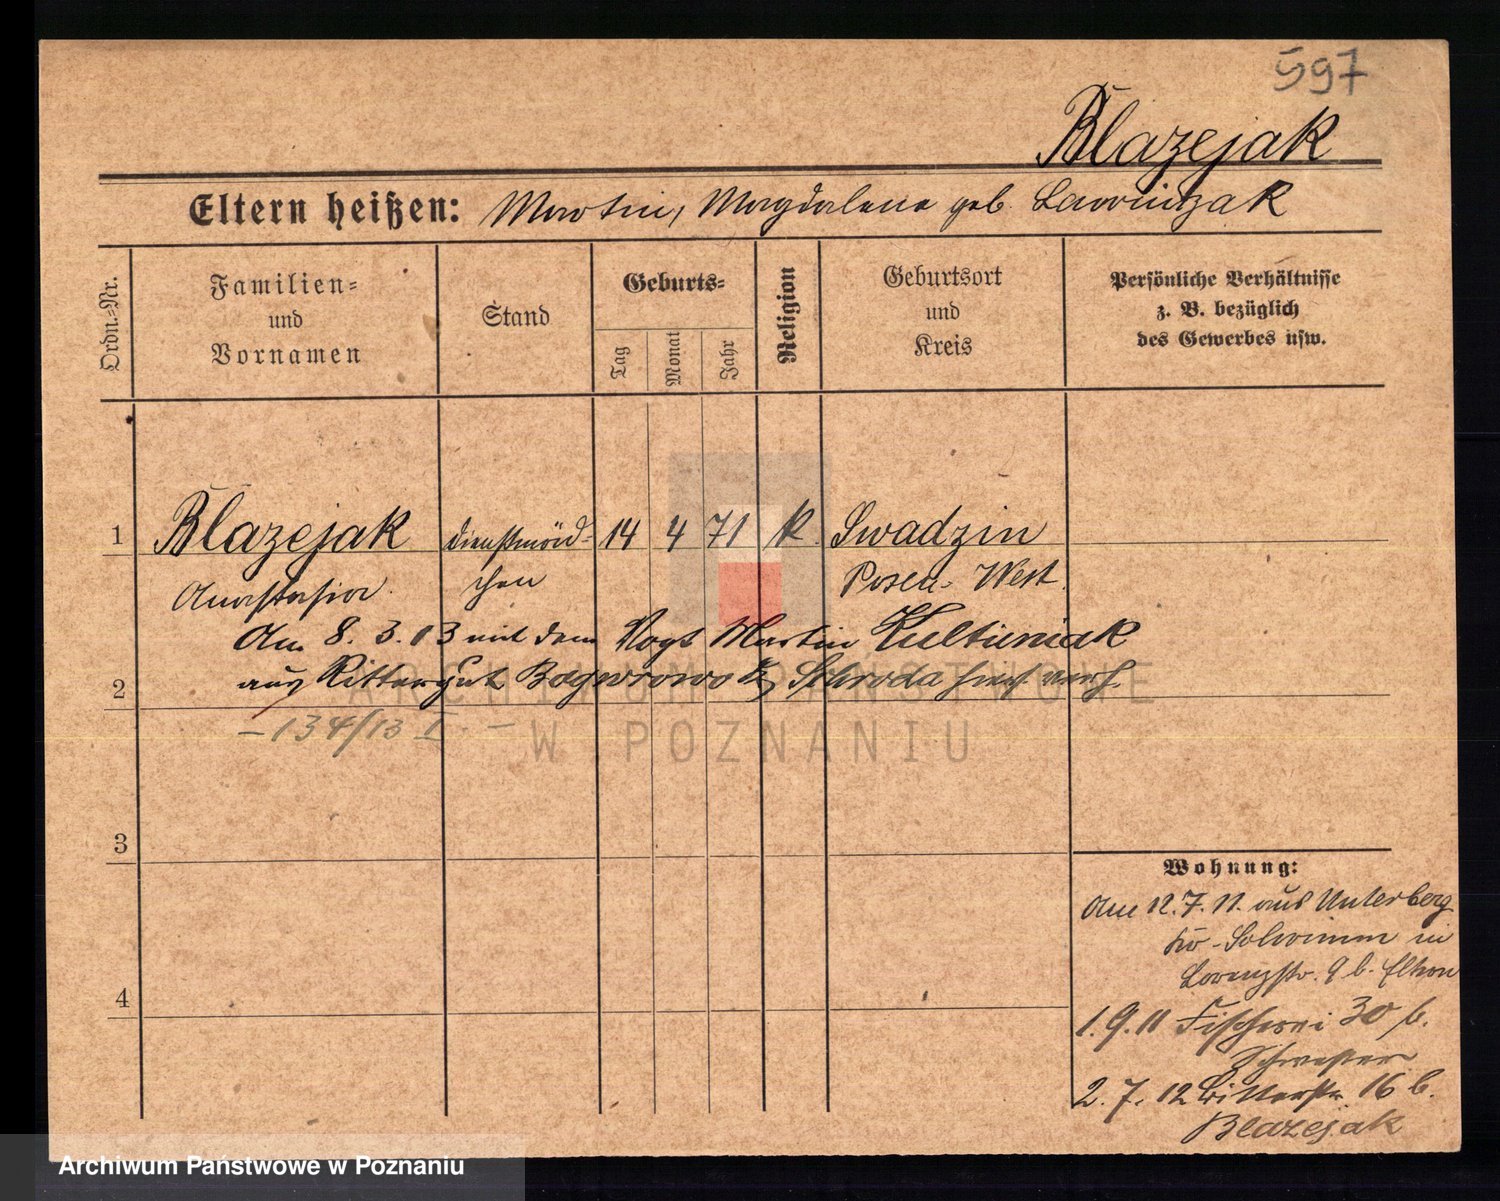 597
Blazejak
Eltern heißen: Martin, Magdalena geb. Lawniczak
Ordn.-Nr.
Familien-
und
Vornamen
Stand
Geburts-
Tag
Monat
Jahr
Religion
Geburtsort
und
Kreis
Persönliche Verhältnisse
z. B. bezüglich
des Gewerbes usw.
1 Blazejak Dienstmäd- 14 4 71 k. Swadzin
Anastasia chen Posen-West.
Am 8. 3. 13 mit dem Vogt Martin
2 aus Rittergut Bagrowo Schroda hier verh.
– 134/13 I –
3
4
Wohnung:
Am 12.7.11. aus Unterberg
in
Lorenzstr. 9 b. Eltern
1.9.11 Fischerei 30 b.
Schwester
2.7.12 Ritterstr. 16 b.
Blazejak
ARCHIWUM PAŃSTWOWE
W POZNANIU
Archiwum Państwowe w Poznaniu